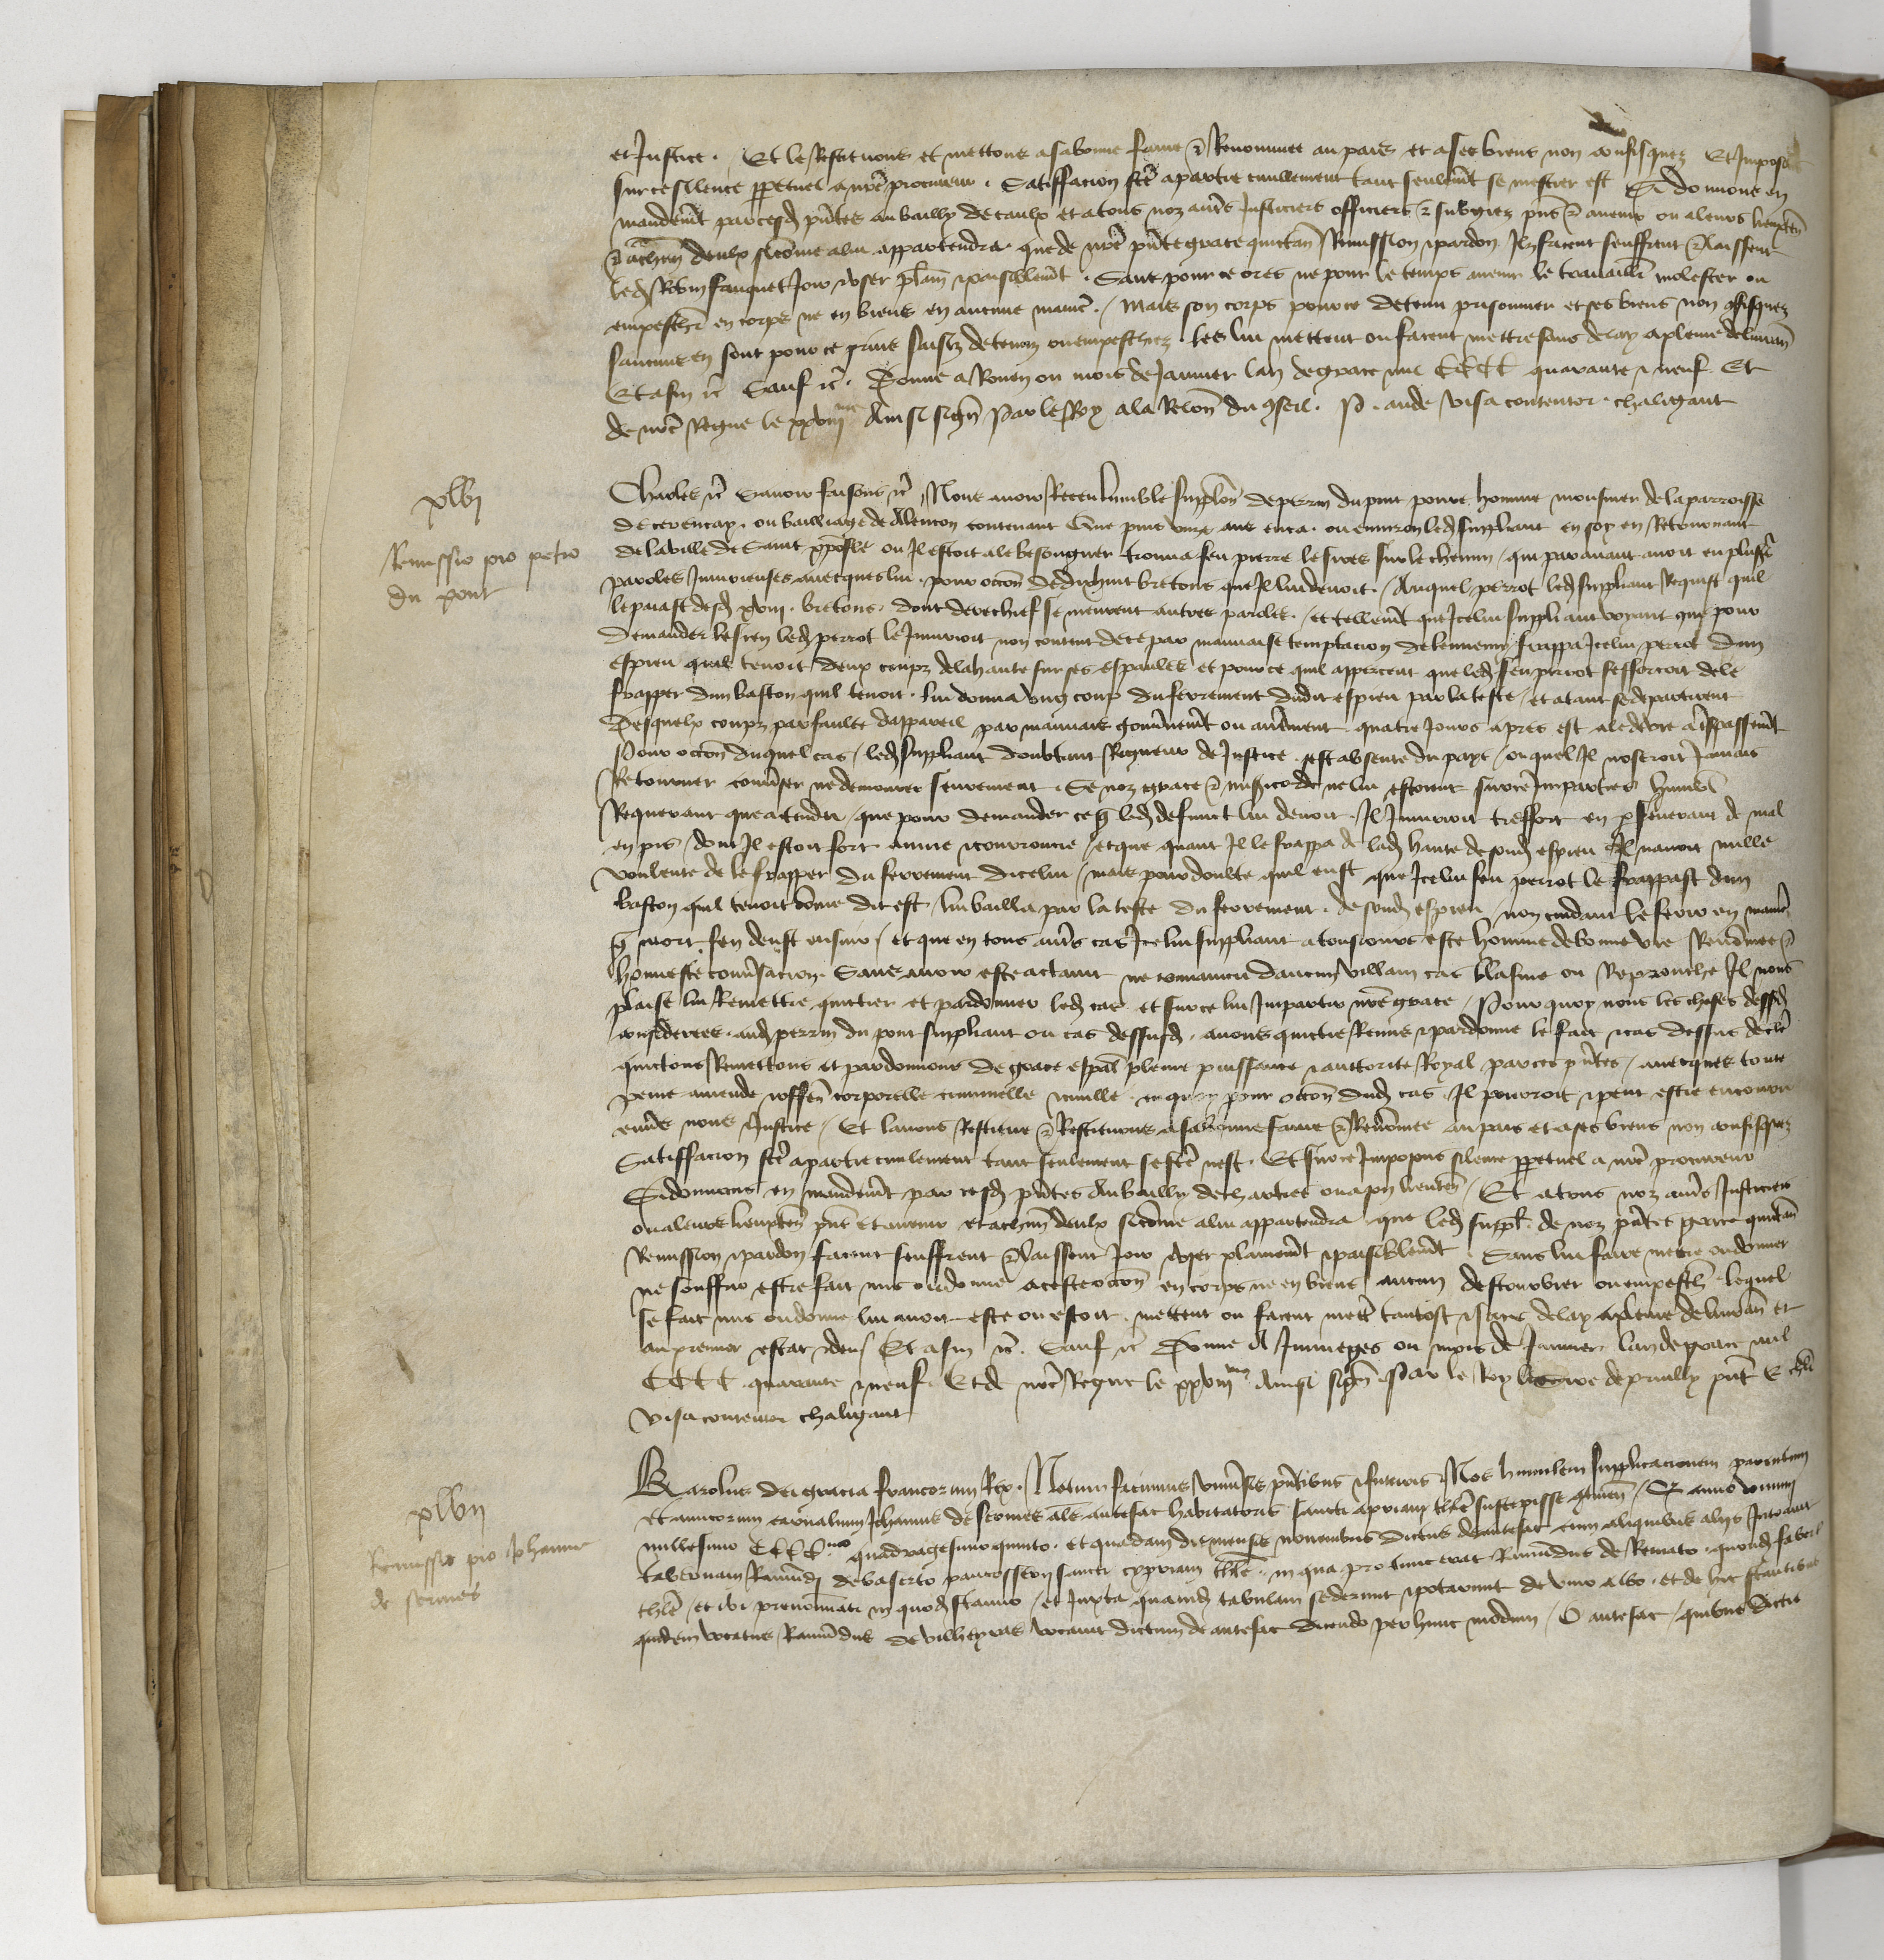 et Justice. Et le Restituons et mettons a sa bonne fame & Renommee au pais et a ses biens non confisquez Et Imposõ
sur ce sillence ppetuel a nr̃e procureur. Satiffacion fc̃e a partie civillement tant seulem̃t se mestier est Si donnons en
mandem̃t par cesd' pñtes au bailly de caulx et a tous noz aut̃s Justiciers officiers & subgiez pñs & avenir ou a leurs lieuxten̄
& a ch̃un deulx si cõme a lui appartendra que de nr̃e pñte grace quictan̄ Remission & pardon Ilz facent seuffrent & laissent
led' Robin fauquet Joir & user plain̄ & paisiblem̃t. Sans pour ce ores ne pour le temps avenir le travaill' molester ou
empesch' en corps ne en biens en aucune manie'. Mais son corps pource detenu prisonnier et ses biens non ɔfisquez
saucuns en sont pour ce prins saisiz detenuz ou empeschez les lui mettent ou facent mettre sans delay a pleine delivran̄
Et afin &c̃ Sauf &c̃. Donne a Rouen ou mois de Janvier lan de grace mil CCCC quarante & neuf Et
de nr̃e Regne le xxviij me Ainsi sign̄ Par le Roy a la Relon̄ du ɔseil. P. aude visa contentor. chaligaut
xlvj
Remissio pro petro
du pont
Charles &c̃ Savoir faisons &c̃ Nous avoir Receu lumble supplon̄ de perrin du pont povre homme monsnier de la parroisse
de cerencay. ou bailliage de Alencon contenant Que puis unze ans enca. ou environ led' suppliant en soy en Retournant
de la ville de Saint xpofle ou Il estoit ale besongner trouva feu pierre le sires sur le chemin, qui paravant avoit eu plus's
paroles Injurieuses avecques lui. pour occon̄ de dix huit bretons que Il lui devoit. Auquel perrot led' suppliant Requist quil
le paiast desd' xviij. bretons. dont derechief se meurent autres paroles. et tellem̃t que Icelui suppliant voyant que pour
demander le sien led' perrot le Injurioit non content de ce par mauvaise temptacion de lennemi frappa Icelui perrot dun
espieu quil tenoit deux coups de la hante sur ses espaules et pour ce quil appercent que led' feu perrot sefforcoit de le
frapper dun baston quil tenoit. lui donna ung coup du ferrement dudit espieu par la teste, et atant se departirent
Desquelx coups par faulte dappareil par mauvais gouvernem̃t ou autrement quatre Jours apres est ale de vie a trespassem̃t
Pour occon̄ duquel cas, led' suppliant doubtant Rigueur de Justice sest absente du pays, ouquel Il noseroit Jamais
Retourner conv̄ser ne demourer seurement. Se noz grace & mis'icorde ne lui estoient sur ce Imparties humbl'
Requerant que attendu, que pour demander ce q̄ led' deffunct lui devoit. Il Injurioit tresfort en p̄severant de mal
en pis, dont Il estoit fort anime & courrouce, et que quant Il le frappa de lad' hante de sond' espieu Il navoit nulle
voulente de le frapper du ferrement dicelui, mais pour doubte quil eust que Icelui feu perrot le frappast dun
baston quil tenoit cõme dit est, lui bailla par la teste du ferrement. de sond' espieu, non cuidant le ferir en manie'
q̄ mort sen deust ensuir, et que en tous aut̃s cas Icelui suppliant a tousjours este homme de bonne vie Renōmee &
honneste conv̄sacion. Sans avoir este actaint ne convaincu daucun villain cas blasme ou Reprouche Il nous
plaise lui Remettre quictier et pardonner led' cas et sur ce lui Impartir nr̃e grace, Pourquoy nous les choses dessusd'
considerees. aud' perrin du pont suppliant ou cas dessusd'. avons quictie Remis & pardonne le fait & cas dessus decle'
quictons Remettons et pardonnons de grace espal' pleine puissance & auttorite Royal par ces pñtes, avecques toute
peine amende & offen̄ corporelle criminelle & civille en quoy pour occon̄ dud' cas. Il pourroit & peut estre encouru
env̄s nous & Justice, Et lavons Restitue & Restituons a sa bonne fame & Renōmee au pais et a ses biens non confisquez
Satiffacion fc̃e a partie civilement tant seulement se fc̃e nest. Et sur ce Imposons silence ppetuel a nr̃e procureur
Si donnons en mandem̃t par cesd' pñtes Au bailly de chartres ou a son lieuten̄, Et a tous noz aut̃s Justiciers
ou a leurs lieuxten̄ pñs et avenir et a ch̃un deulx si cõme a lui appartendra que led' suppl't. de noz pñtes grace quictan̄
Remission & pardon facent seuffrent & laissent Joir & user plainem̃t & paisiblem̃t. Sans lui faire mectre ou donner
ne souffrir estre fait mis ou donne a ceste occon̄ en corps ne en biens aucun destourbier ou empesch' lequel
se fait mis ou donne lui avoit este ou estoit. mettent ou facent mett' tantost & sans delay a pleine delivran̄ et
au premier estat & deu, Et afin &c̃. Sauf &c̃ Donne A Jumieges ou mois de Janvier lan de grace mil
CCCC quarante & neuf. Et de nr̃e Regne le xxviij me Ainsi sign̄ Par le Roy le sire de prully pñt
visa contentor chaligaut
xlvij
Remissio pro Johanne
de sermes
Karolus dei gracia francorum Rex. Notum facimus univ̄sis pñtibus & futuris Nos humilem supplicacionem parentum
et amicorum carnalium Johannis de sermes al's antesac habitatoris sancti cipriani thlẽ suscepisse ɔtinen̄, Q̄ anno domini
millesimo CCCC mo quadragesimo quinto. et quadam die mensis novembris dictus de antesac cum aliquibus aliis Intravit
tabernam Ramūdi de vaserto sancti cypriani thlẽ. in qua pro tunc erat Ramūdus de Remato. quond' fabr'
thlẽ, et ibi prenōinati in quod' scanno, et Juxta quamd' tabulam sederunt & potarunt de vino albo. et de hic stantibus
quidem vocatus Ramūdus de vilheyras vocavit dictum de antesac dicendo per hunc modum, O antesac, quibus dictis